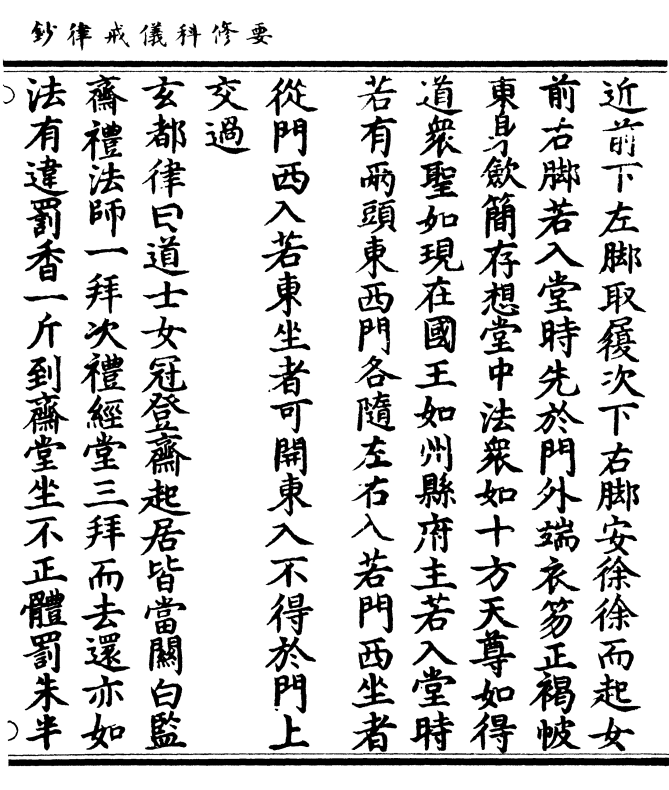 要修科儀戒律鈔
近前下左脚取履次下右脚安徐徐而起女
前右脚若入堂時先於門外端衣笏正褐帔
東身歛簡存想堂中法衆如十方天尊如得
道衆聖如現在國王如州縣府主若入堂時
若有兩頭東西門各隨左右入若門西坐者
從門西入若東坐者可開東入不得於門上
交過
玄都律曰道士女冠登齋起居皆當關白監
齋禮法師一拜次禮經堂三拜而去還亦如
法有違罰香一斤到齋堂坐不正體罰朱半